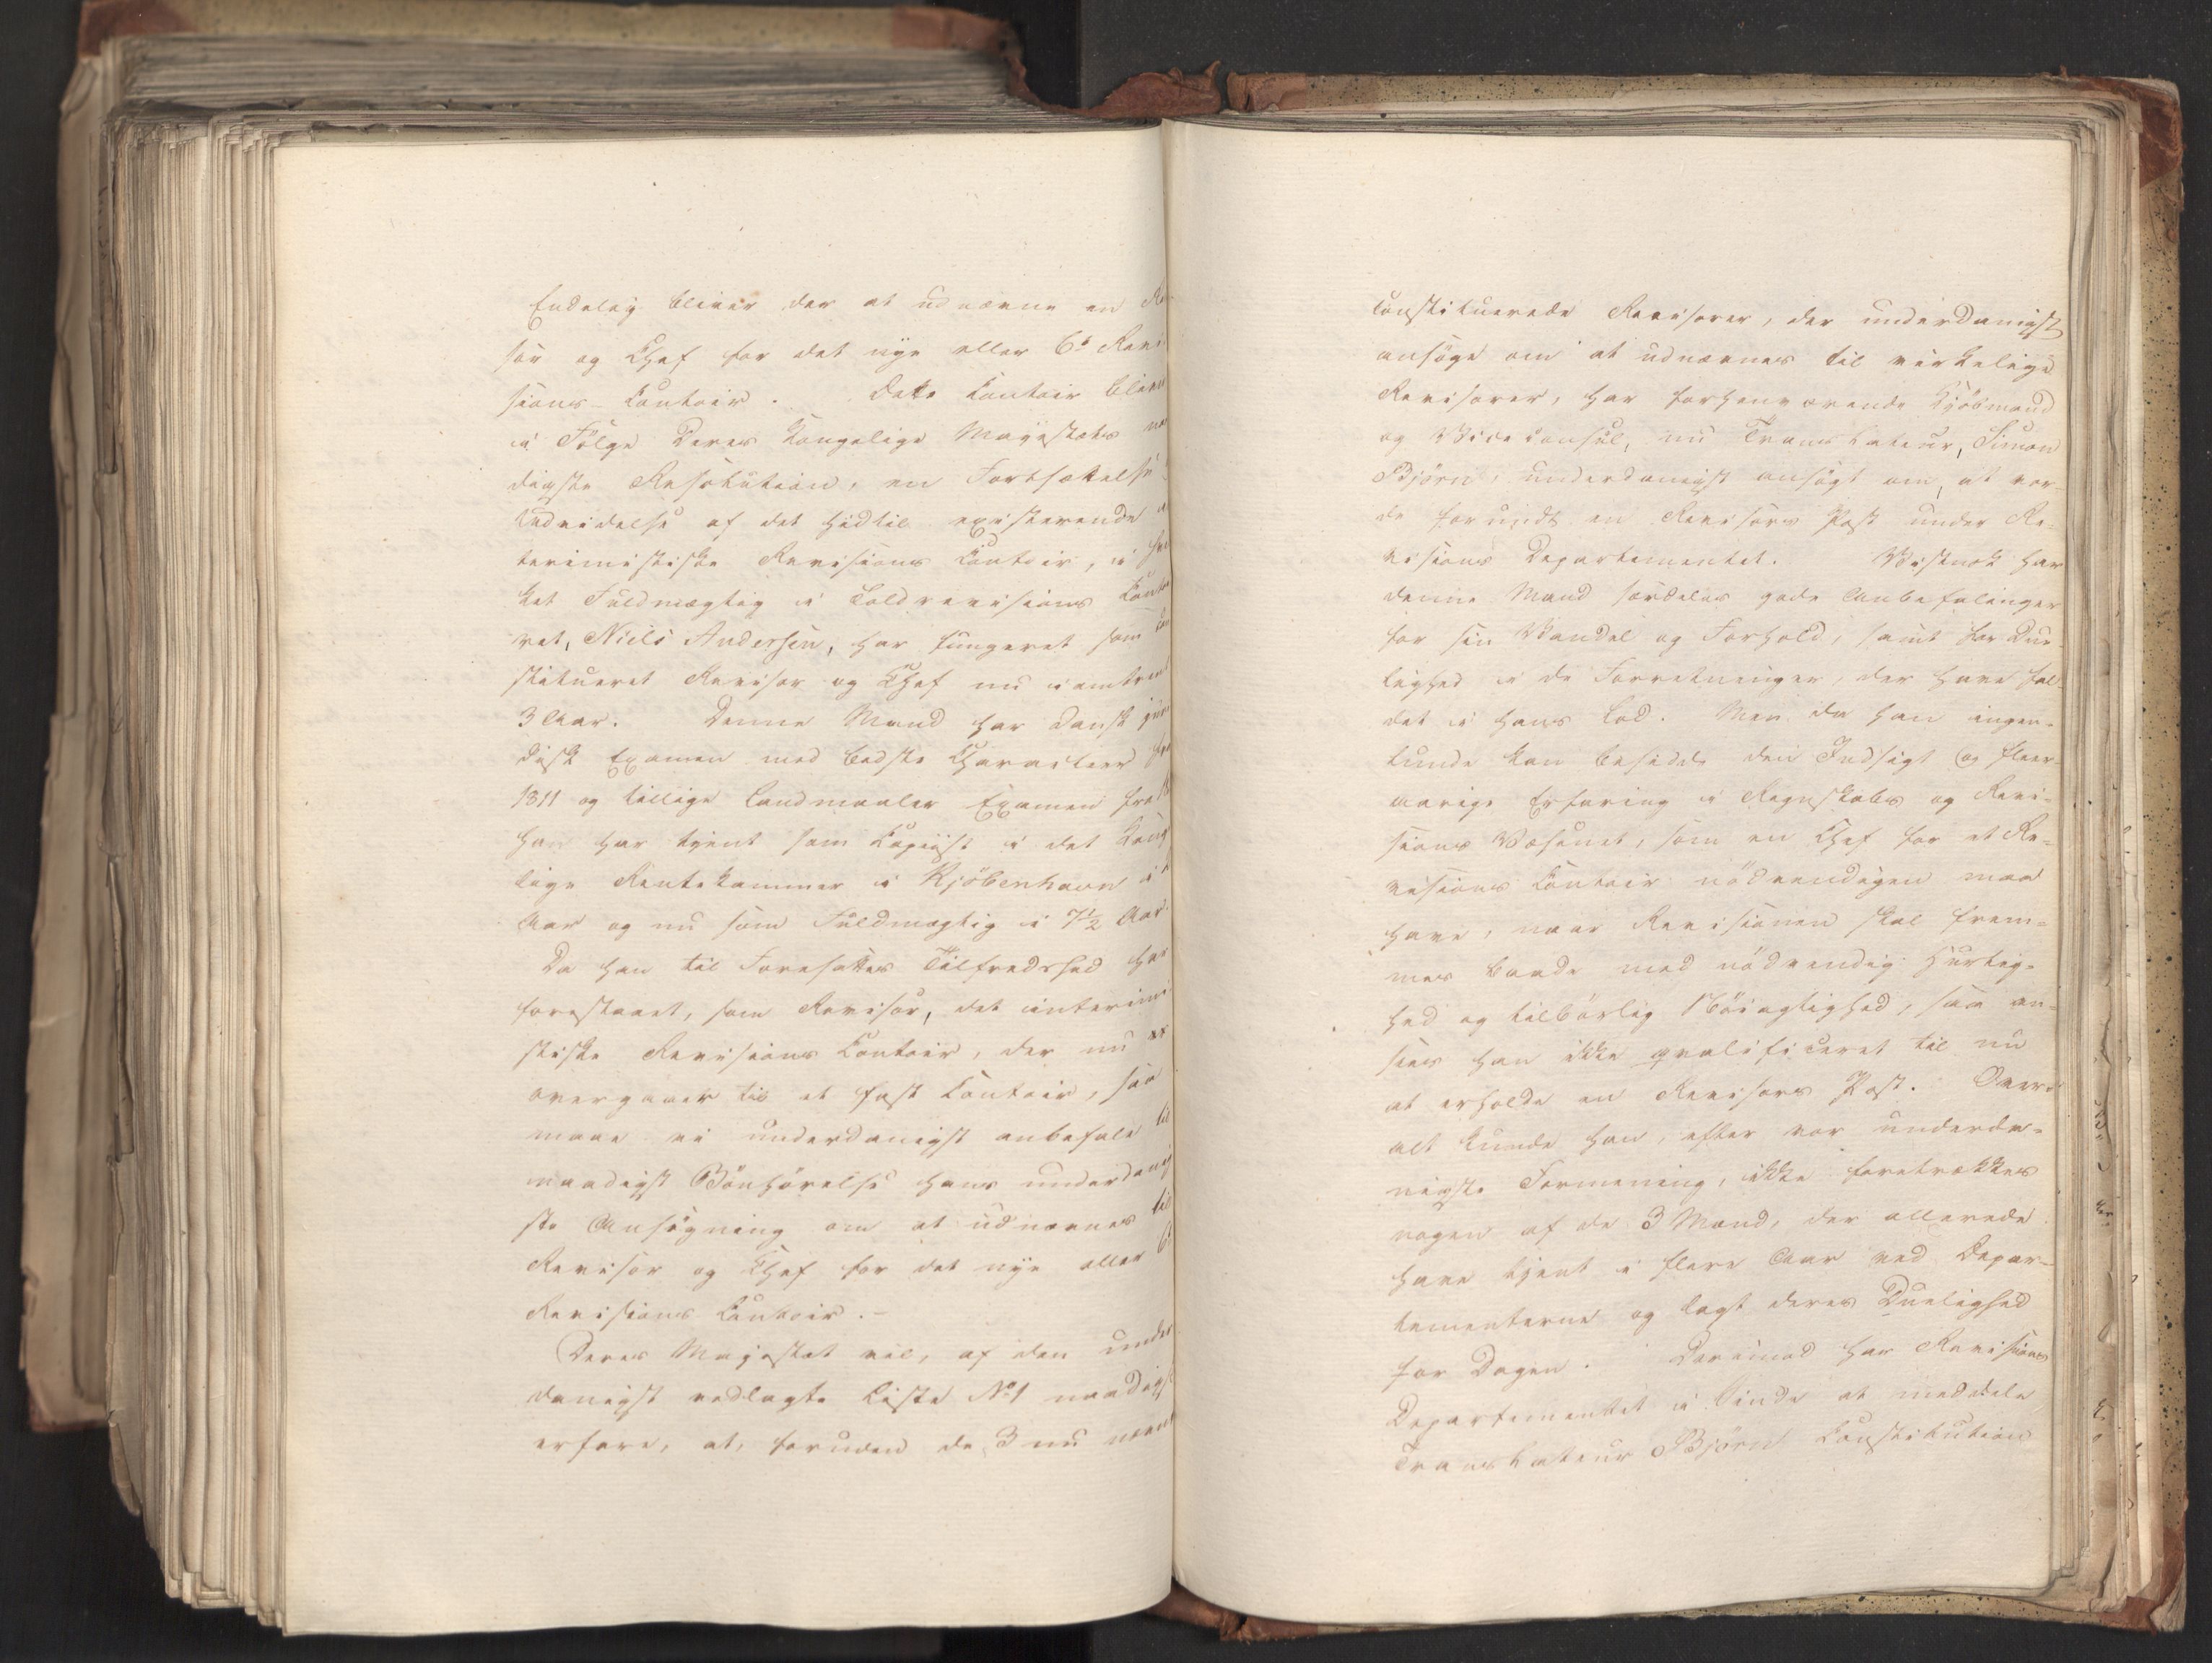 Endelig bliver der at udnævne en Re-
sor og Chef for det nye eller 6te Revi
sions-Contoir. Dette Contoir bliver
i Følge Deres Kongelige Majestæts naa
digste Resolution, en Fortsættelse
Udvidelse af det hidtil existerende in
terimistiske Revisions Contoir, i hvil
ket Fuldmægtig i Toldrevisions Contoi
ret, Niels Anderssen, har fungeret som con
stitueret Revisor og Chef nu i omtrent
3 Aar. Denne Mand har dansk juri
disk Examen med bedste Characteer fra
1811 og tillige Landmaaler Examen fra
han har tjent som Copiist i det Konge
lige Rentekammer i Kjöbenhavn i
Aar og nu som Fuldmægtig i 7½ Aar.
Da han til Foresattes Tilfredshed har
forestaaet, som Revisor, det interimi
stiske Revisions Contoir, der nu
overgaaer til et fast Contoir, saa
maae vi underdanigst anbefale til
naadigst Bönhörelse hans underdanig
ste Ansögning om at udnævnes til
Revisor og Chef for det nye eller 6te
Revisions Contoir.-
Deres Majestæt vil, af den under
danigst vedlagte Liste No 1 naadigst
erfare, at, foruden de 3 nu nævnte
constituerede Revisorer, der underdanigst
ansöge om at udnævnes til virkelige
Revisorer, har forhenværende Kjöbmand
og Viceconsul, nu Translateur, Simon
Björn, underdanigst ansögt om, at vor-
de forundt en Revisors Post under Re-
visions Departementet. Vistnok har
denne Mand særdeles gode Anbefalinger
for sin Vandel og Forhold, samt for Due-
lighed i de Forretninger, der have fal-
det i hans Lod. Men da han ingen-
lunde kan besidde den Indsigt og fleer-
aarige Erfaring i Regnskabs og Revi-
sions Væsenet, som en Chef for et Re-
visions Contoir nödvendigen maa
have, naar Revisionen skal frem-
mes baade med nödvendig Hurtig-
hed og tilbörlig Nöiagtighed, saa an-
sees han ikke qvalificeret til nu
at erholde en Revisors Post. Over-
alt kunde han, efter vor underda-
nigste Formening, ikke foretrækkes
nogen af de 3 Mænd, der allerede
have tjent i flere Aar ved Depar-
tementerne og lagt deres Duelighed
for Dagen. Derimod har Revisions
Departementet i Sinde at meddele
Translateur Björn Constitution